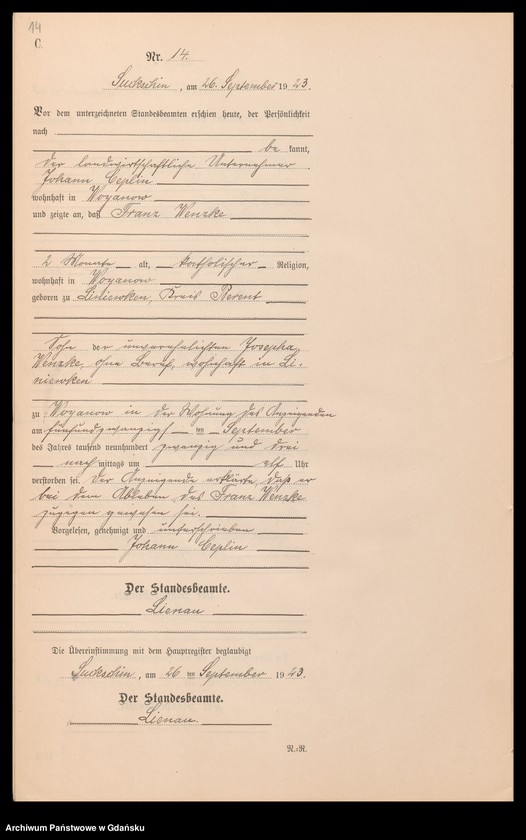 14
C.
Nr. 14.
Suckschin, am 26. September 1923.
Vor dem unterzeichneten Standesbeamten erschien heute, der Persönlichkeit
nach
be kannt,
der landwirtschaftliche Unternehmer
Johann Ceplin
wohnhaft in Woyanow
und zeigte an, daß Franz Wenzke
2 Monate alt, katholischer Religion,
wohnhaft in Woyanow
geboren zu Liniewken, Kreis Berent
Sohn der unverehelichten Josepha
Wenzke, ohne Beruf, wohnhaft in Li-
niewken
zu Woyanow in der Wohnung des Anzeigenden
am fünfundzwanzigsten September
des Jahres tausend neunhundert zwanzig und drei
nach mittags um elf Uhr
verstorben sei. Der Anzeigende erklärte, daß er
bei dem Ableben des Franz Wenzke
zugegen gewesen sei.
Vorgelesen, genehmigt und unterschrieben
Johann Ceplin
Der Standesbeamte.
Lienau
Die Übereinstimmung mit dem Hauptregister beglaubigt
Suckschin, am 26 ten September 1923.
Der Standesbeamte.
Lienau.
N.-R.
Archiwum Państwowe w Gdańsku